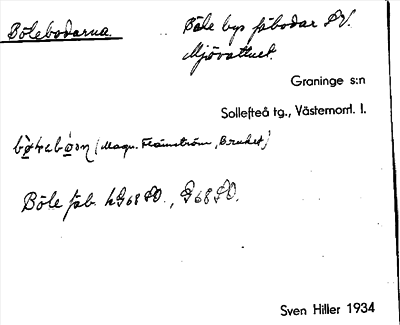 Bölebodarna
Böle bys fäbodar SV.
Mjövattnet.
Graninge s:n
Sollefteå tg., Västernorrl. l.
(Magn. Flämström, Bruket)
Böle fäb. hG68SO., G68SO.
Sven Hiller 1934